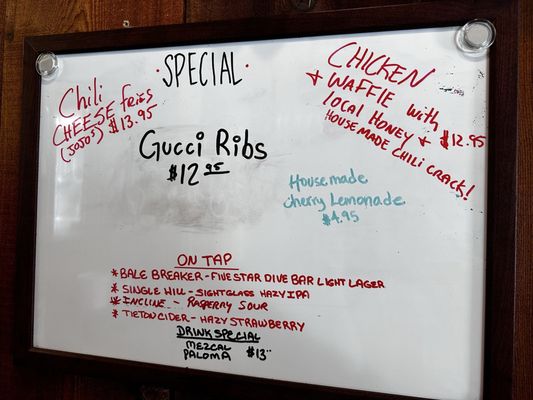 ·SPECIAL·
Chili
CHEESE fries
(JOJO's) $13.95
CHICKEN
+ WAFFIE with
local HONEY + $12.95
HOUSE MADE CHILI CRACK!
Gucci Ribs
$12 95
Housemade
Cherry Lemonade
$4.95
ON TAP
* BALE BREAKER - FIVE STAR DIVE BAR LIGHT LAGER
* SINGLE HILL - SIGHTGLASS HAZY IPA
* INCLINE - RASPERRY SOUR
* TIETON CIDER - HAZY STRAWBERRY
DRINK SPECIAL
MEZCAL
PALOMA $13